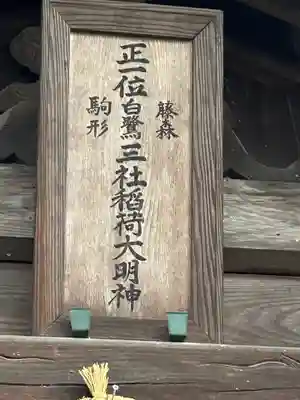 藤森
正一位白鷺三社稻荷大明神
駒形